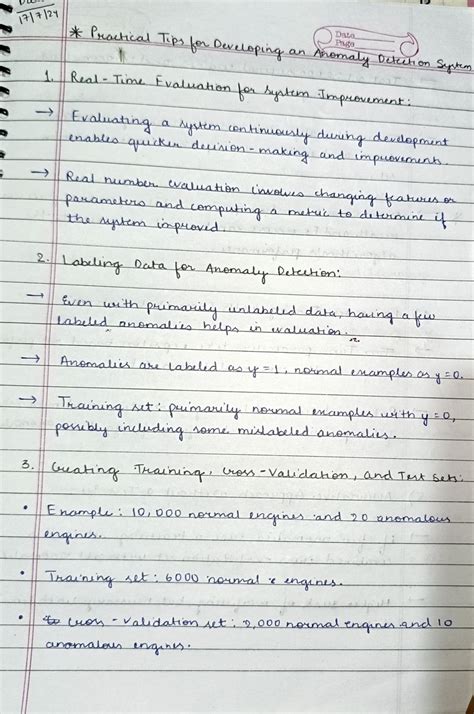 17/7/24
Date
Page
* Practical Tips for Developing an Anomaly Detection System
1. Real-Time Evaluation for System Improvement:
→ Evaluating a system continuously during development
enables quicker decision-making and improvement.
→ Real number evaluation involves changing features or
parameters and computing a metric to determine if
the system improved.
2. Labeling Data for Anomaly Detection:
→ Even with primarily unlabeled data, having a few
labeled anomalies helps in evaluation.
→ Anomalies are labeled as y=1, normal examples as y=0.
→ Training set: primarily normal examples with y=0,
possibly including some mislabeled anomalies.
3. Creating Training, Cross-Validation, and Test Sets:
• Example: 10,000 normal engines and 20 anomalous
engines.
• Training set: 6000 normal engines.
• Cross-validation set: 2,000 normal engines and 10
anomalous engines.